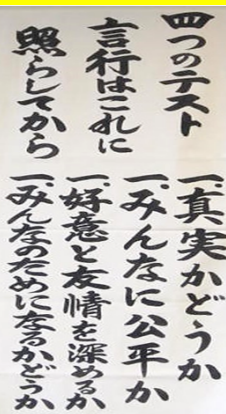 四つのテスト
言行はこれに
照らしてから
一、真実かどうか
一、みんなに公平か
一、好意と友情を深めるか
一、みんなのためになるかどうか